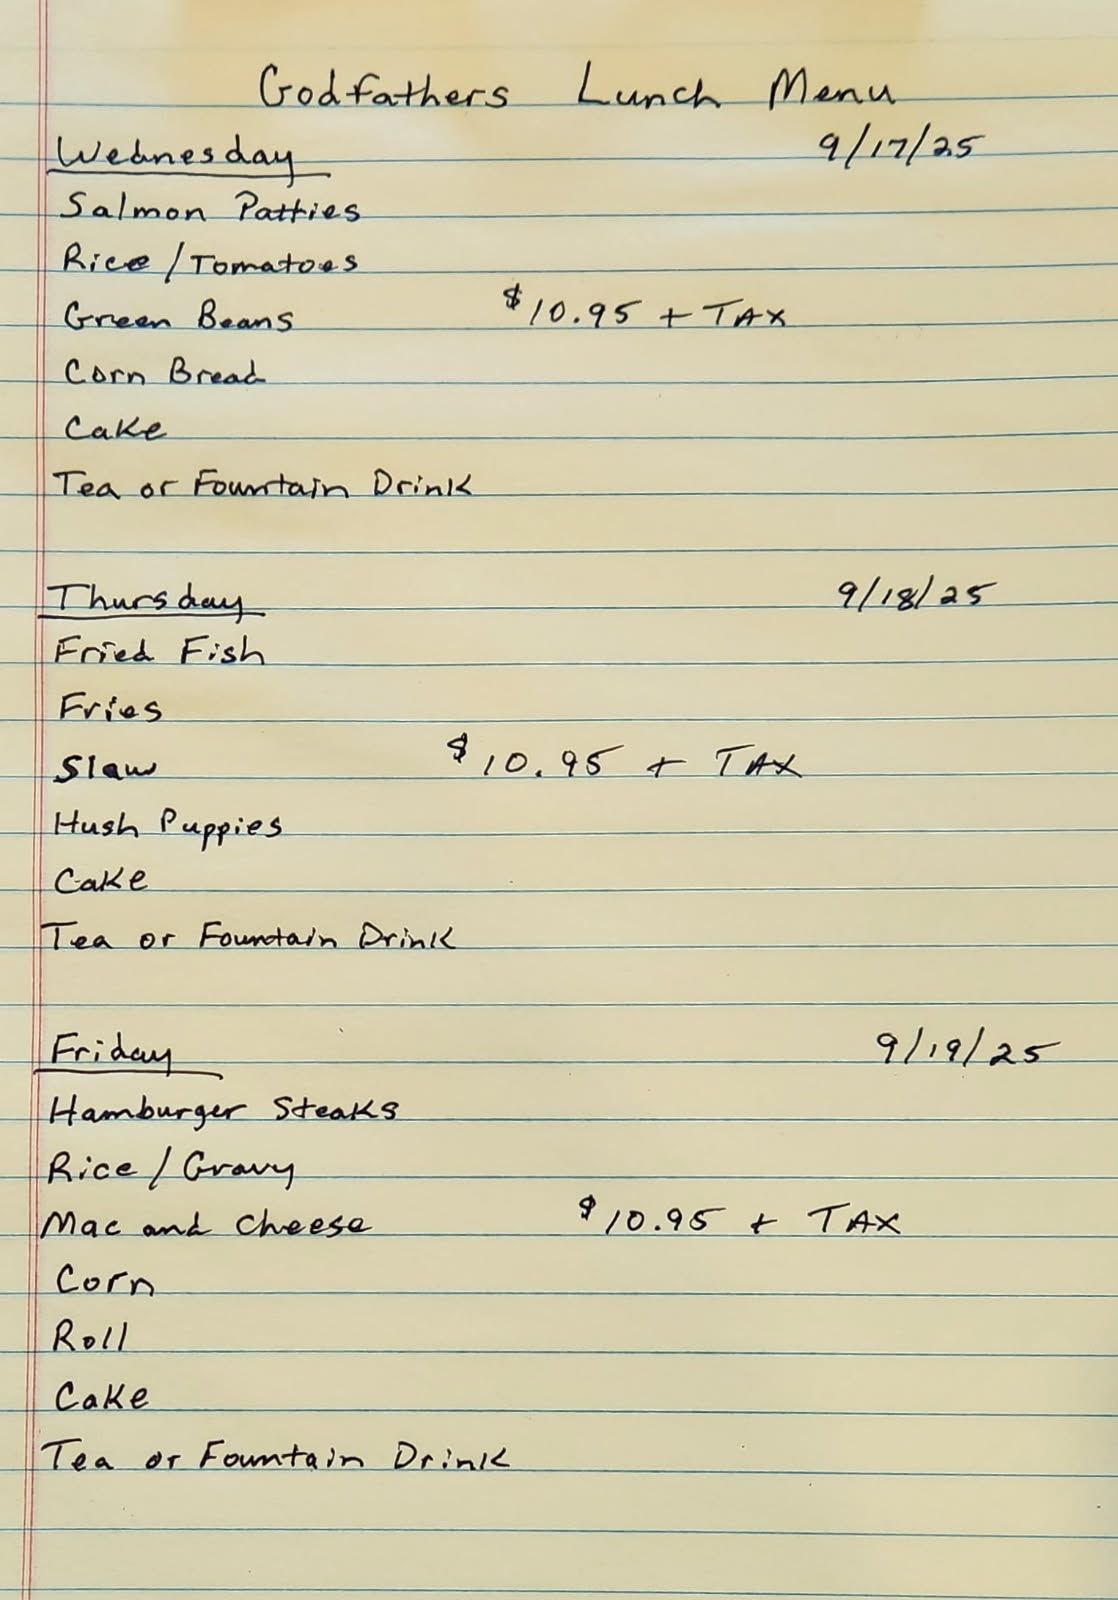 Godfathers Lunch Menu
Wednesday 9/17/25
Salmon Patties
Rice/Tomatoes
Green Beans $10.95 + TAX
Corn Bread
Cake
Tea or Fountain Drink
Thursday 9/18/25
Fried Fish
Fries
Slaw $10.95 + TAX
Hush Puppies
Cake
Tea or Fountain Drink
Friday 9/19/25
Hamburger Steaks
Rice/Gravy
Mac and Cheese $10.95 + TAX
Corn
Roll
Cake
Tea or Fountain Drink